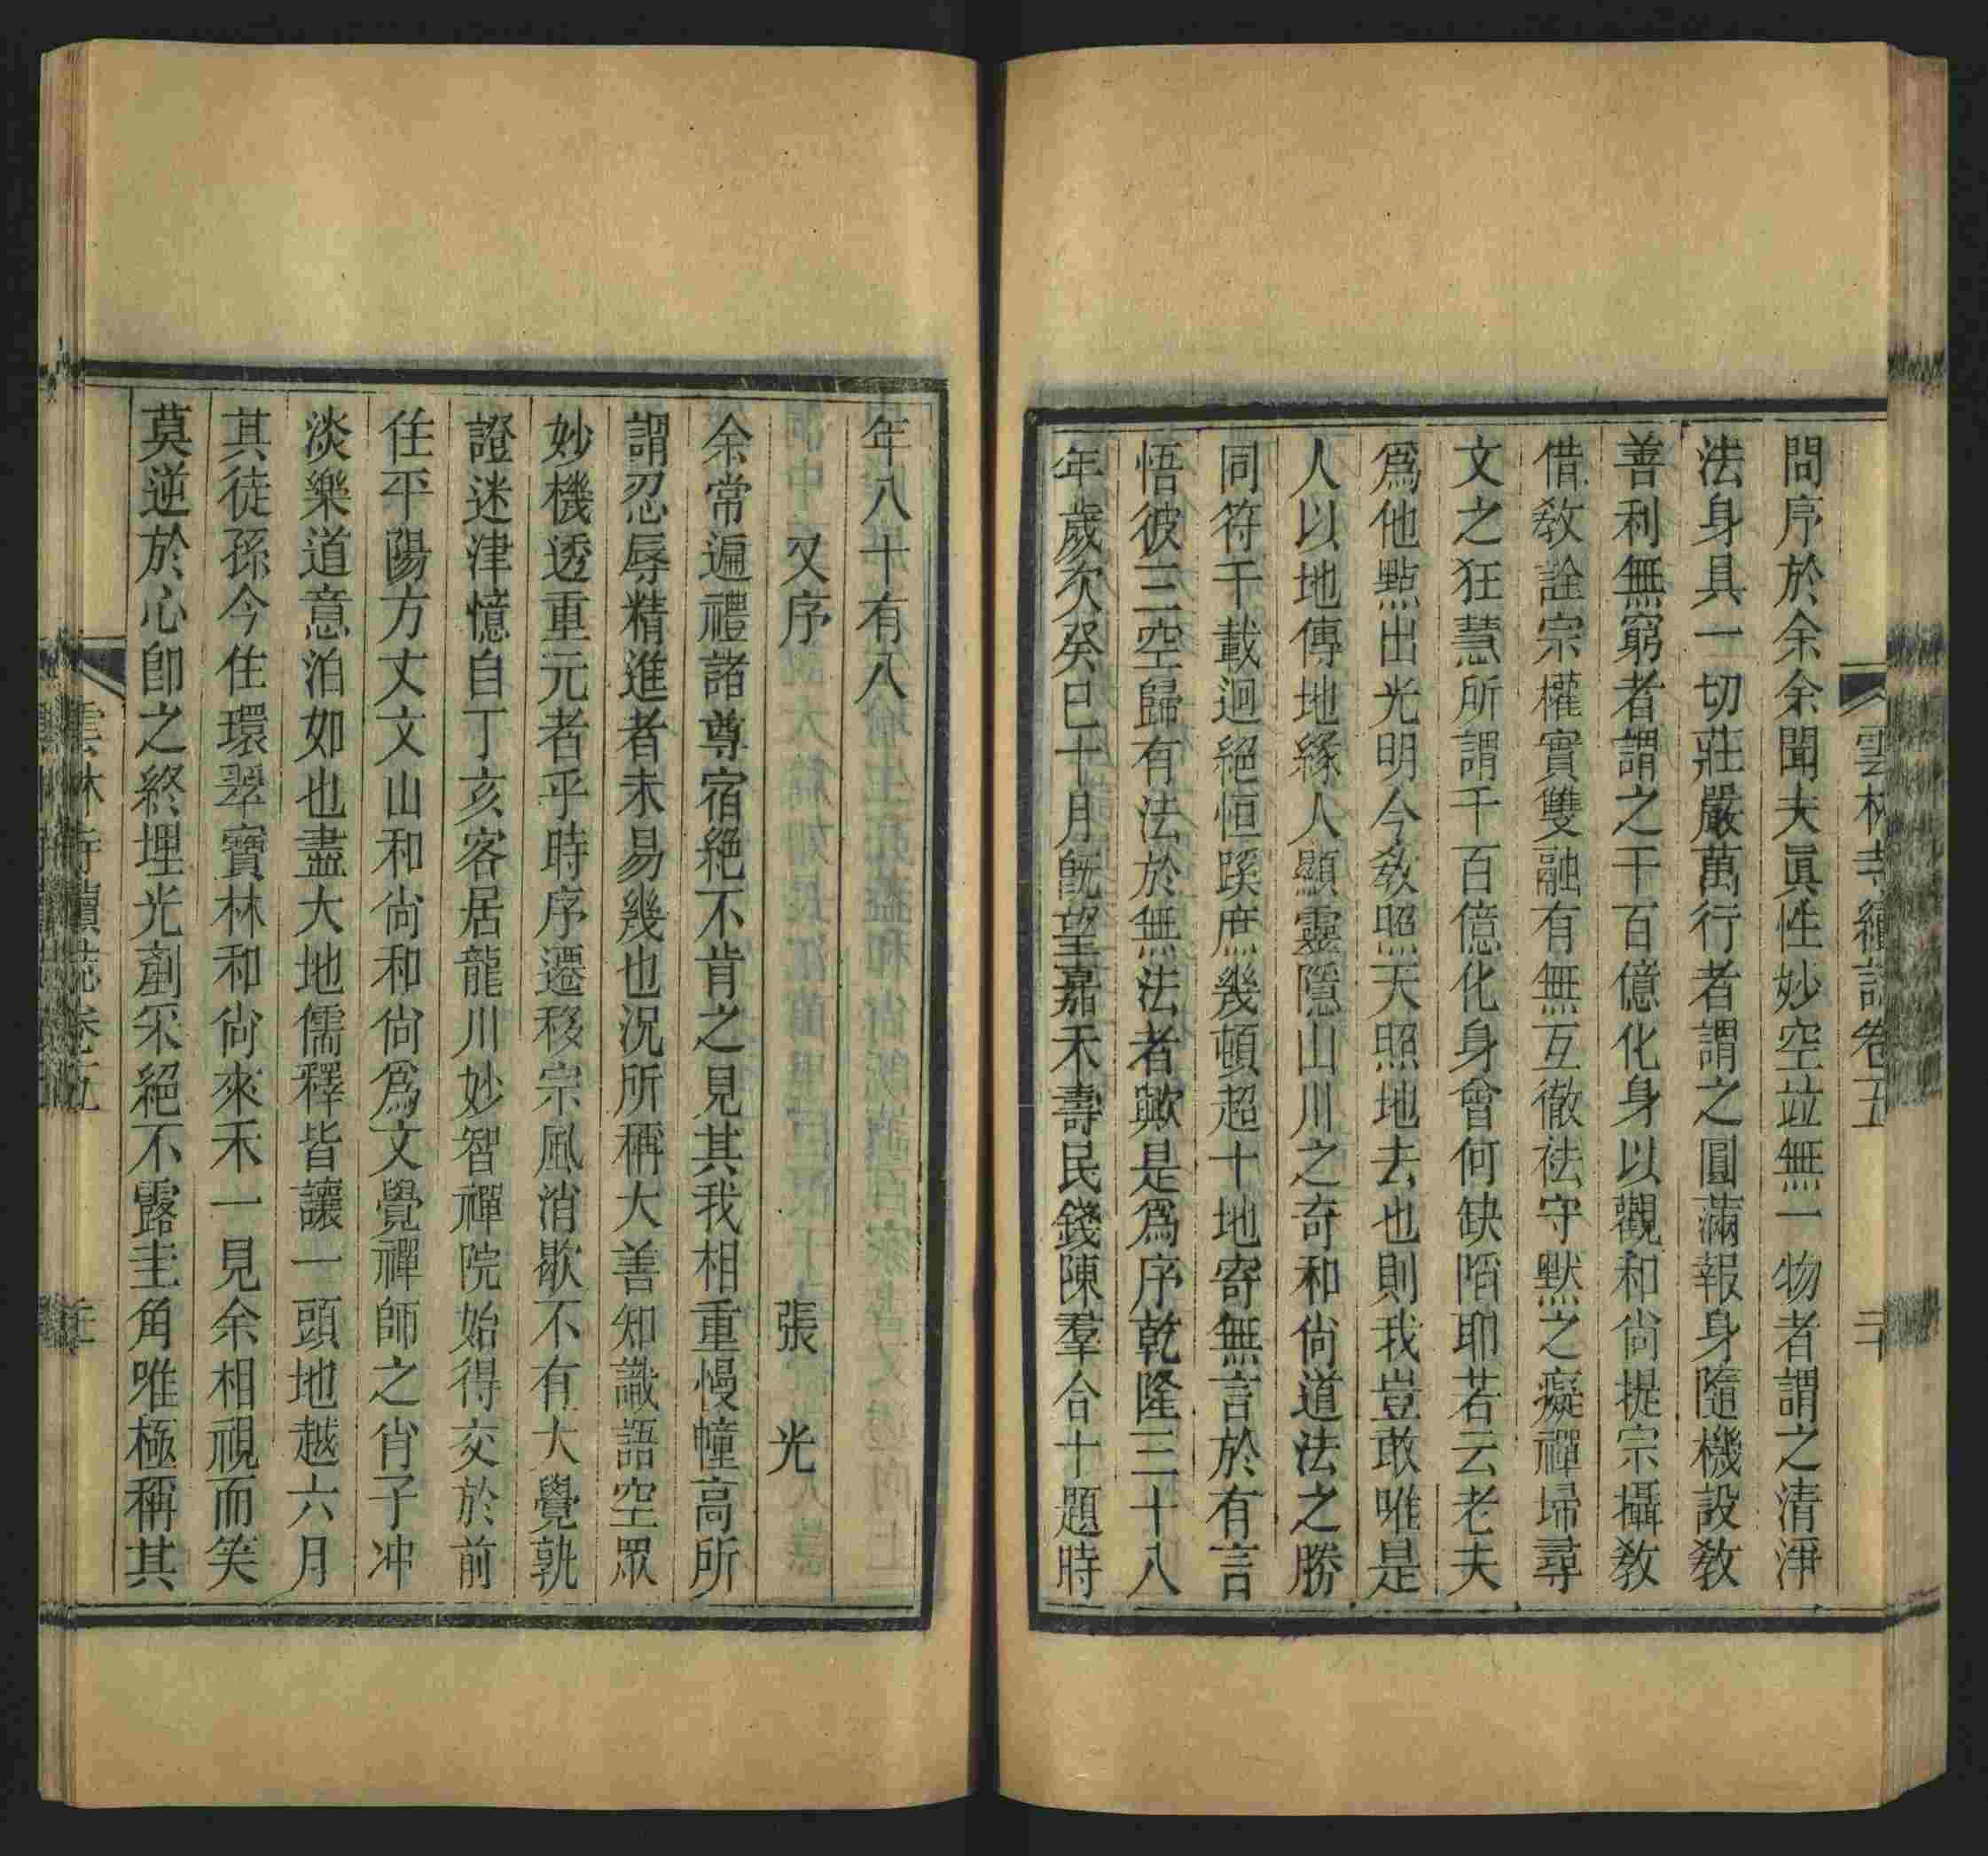 雲林寺續誌卷五
二十
問序於余余聞夫眞性妙空竝無一物者謂之清淨
法身具一切莊嚴萬行者謂之圓滿報身隨機設敎
善利無窮者謂之千百億化身以觀和尙提宗攝敎
借敎詮宗權實雙融有無互徹袪守默之癡禪埽尋
文之狂慧所謂千百億化身曾何缺陷耶若云老夫
爲他點出光明今敎照天照地去也則我豈敢唯是
人以地傳地緣人顯靈隱山川之奇和尙道法之勝
同符千載迥絕恒蹊庶幾頓超十地寄無言於有言
悟彼三空歸有法於無法者歟是爲序乾隆三十八
年歲次癸巳十月旣望嘉禾壽民錢陳羣合十題時
年八十有八
又序 張光
余常遍禮諸尊宿絕不肯之見其我相重慢幢高所
謂忍辱精進者未易幾也況所稱大善知識語空眾
妙機透重元者乎時序遷移宗風消歇不有大覺孰
證迷津憶自丁亥客居龍川妙智禪院始得交於前
住平陽方丈文山和尙和尙爲文覺禪師之肖子冲
淡樂道意泊如也盡大地儒釋皆讓一頭地越六月
其徒孫今住環翠寶林和尙來禾一見余相視而笑
莫逆於心卽之終埋光剷采絕不露圭角唯極稱其
雲林寺續誌卷五